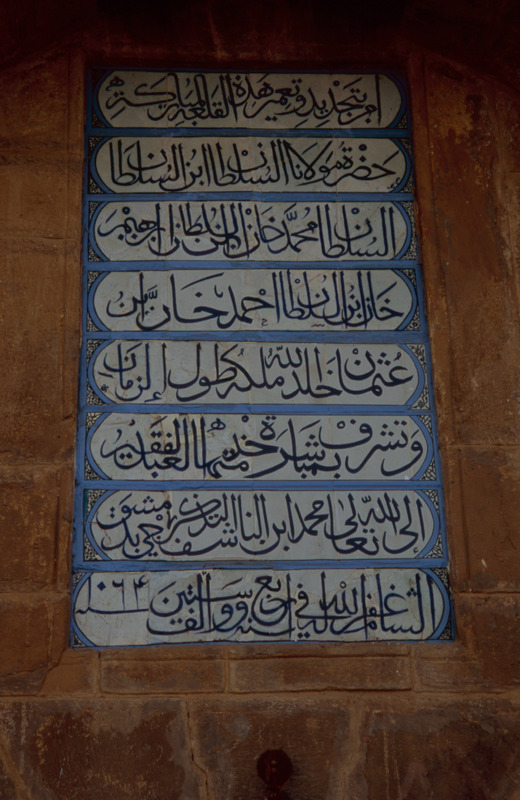 امر بتجديد وتعمير هذه القلعة المباركة
حضرة مولانا السلطان ابن السلطان
السلطان محمد خان ابن السلطان ابرهيم
خان ابن السلطان احمد خان ابن
عثمان خلد الله ملكه طول الزمان
وتشرف بمباشرة خدمتها العبد الفقير
الى الله تعالى محمد ابن الناشف التذكرجي بدمشق
الشام غفر الله له في سنة اربع وستين والف سنة ١٠٦٤